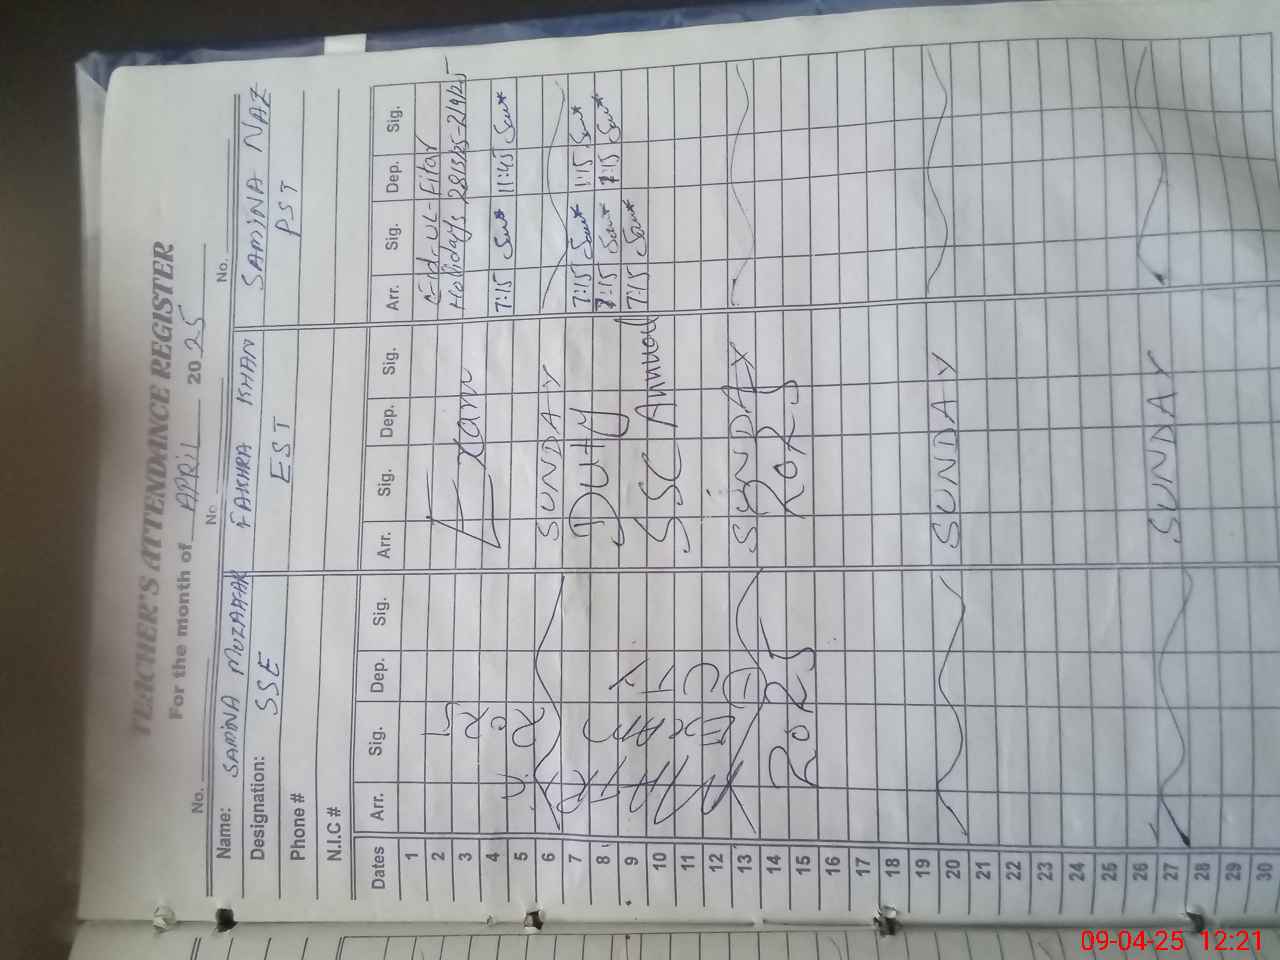 TEACHER'S ATTENDANCE REGISTER
For the month of APRIL 2025
No. No. No.
Name: SAMINA MUZAFFAR FAKHRA KHAN SAMINA NAZ
Designation: SSE EST PST
Phone #
N.I.C #
Dates Arr. Sig. Dep. Sig. Arr. Sig. Dep. Sig. Arr. Sig. Dep. Sig.
1 Eid-UL-Fitar
2 Holidays 28/3/25-2/4/25
3 Exam
4 7:15 11:45
5
6 SUNDAY
7 Duty 7:15 1:15
8 7:15 1:15
9 SSC Annual 7:15
10
11
12
13 SUNDAY
14 RORS RORS
15
16
17
18
19
20 SUNDAY
21
22
23
24
25
26
27 SUNDAY
28
29
30
09-04-25 12:21